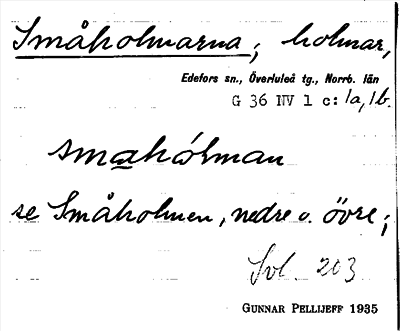 Småholmarna; holmar,
Edefors sn., Överluleå tg., Norrb. län
G 36 NV 1 c: 1a, 1b.
smahólman
se Småholmen, nedre o. övre;
Svl. 203
GUNNAR PELLIJEFF 1935